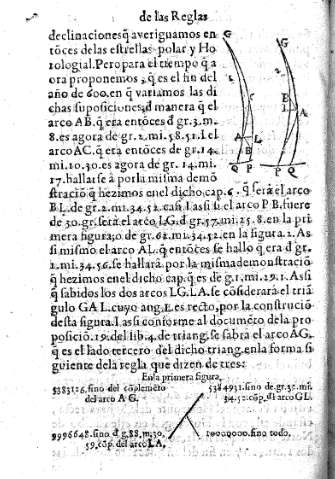 de las Reglas
declinaciones q̃ averiguamos en
tõces de las estrellas polar y Ho
rologial. Pero para el tiempo q̃ a
ora proponemos, q̃ es el fin del
año de 600. en q̃ variamos las di
chas suposiciones, d̃ manera q̃ el
arco AB. q̃ era entõces d̃ gr. 3. m.
8. es agora de gr. 2. mi. 58. 51. I el
arco AC. q̃ era entõces de gr. 14.
mi. 10. 30. es agora de gr. 14. mi.
17. hallarse à por la misma demõ
straciõ q̃ hezimos en el dicho cap. 6. q̃ será el arco
BL. de gr. 2. mi. 34. 52. casi. I assi si el arco PB. fuere
de 30. gr. será el arco LG. d̃ gr. 57. mi. 25. 8. en la pri
mera figura, o de gr. 62. mi. 34. 52. en la figura. 2. As
si mismo el arco AL. q̃ entõces se hallo q̃ era d̃ gr.
2. mi. 34. 56. se hallará por la misma demonstraciõ
q̃ hezimos en el dicho cap. q̃ es de gr. 1. mi. 29. 1. Assi
q̃ sabidos los dos arcos LG. LA. se cõsiderará el triã
gulo GAL. cuyo ang. L. es recto, por la construciõ
desta figura. I assi conforme al documẽto de la pro
posiciõ. 19. del lib. 4. de triang. se sabrá el arco AG.
q̃ es el lado tercero del dicho triang. en la forma si
guiente de la regla que dizen de tres:
En la primera figura,
538312 6. sino del cõplemẽto
del arco AG.
5384931. sino de gr. 32. mi.
34. 52. cõp. d̃l arco GL.
9996648. sino d̃ g. 88. m. 30.
59. cõp. del arco LA.
10000000. sino todo.
G
G
E
A
A
L
B
P
Q
P
Q